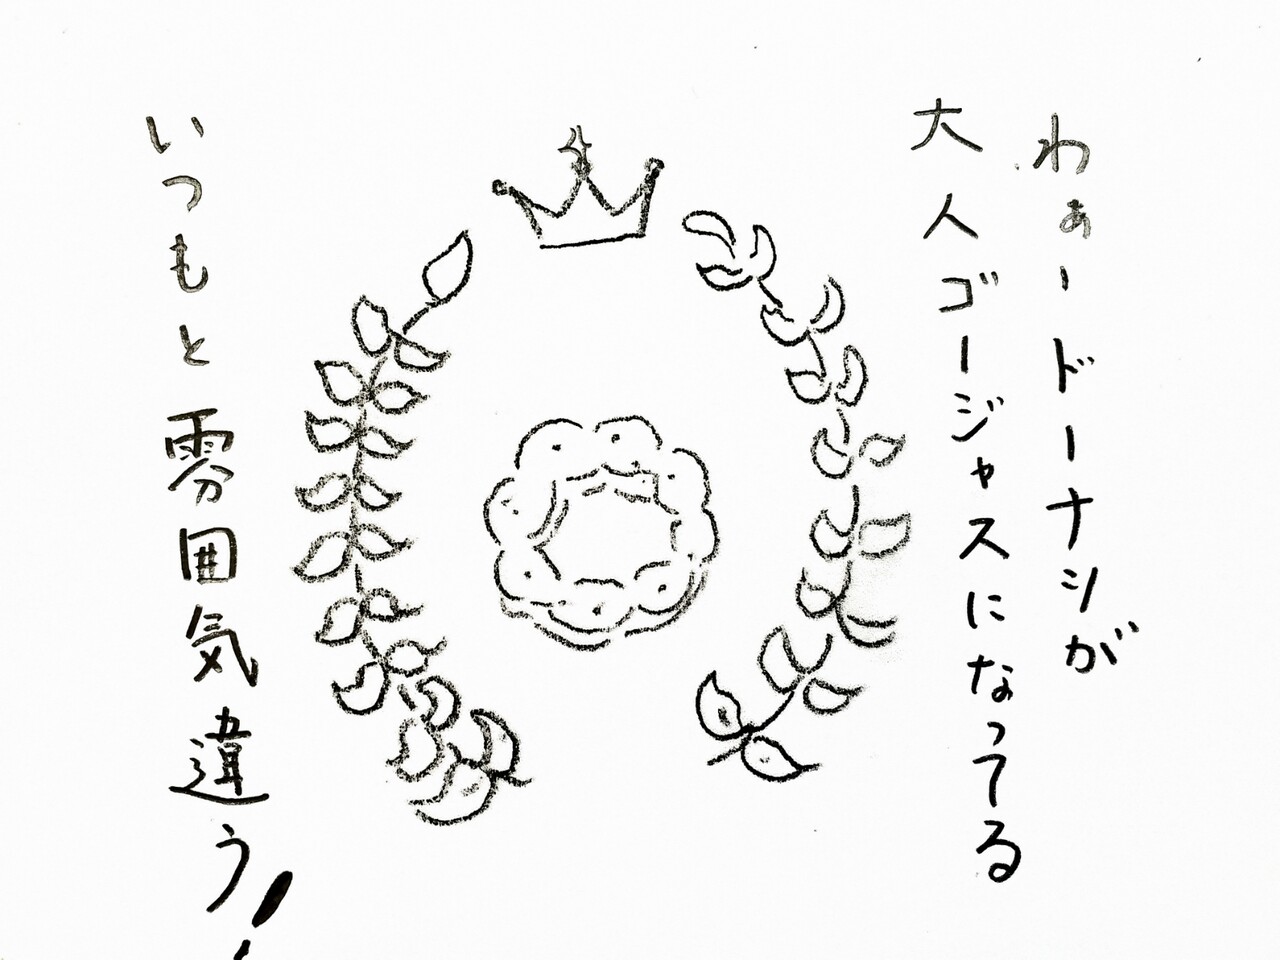 わぁードーナツが
大人ゴージャスになってる
いつもと雰囲気違う!